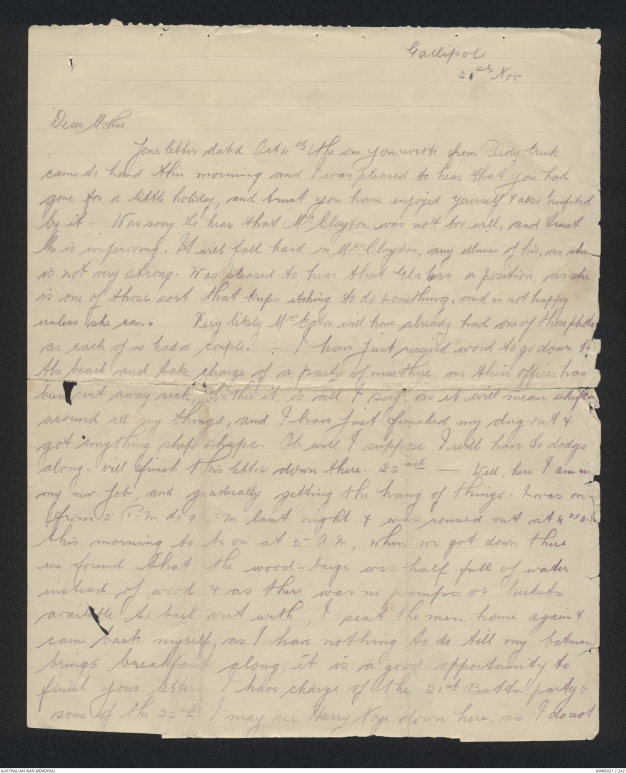 Gallipoli
21st Nov
Dear Mother
Your letter dated Oct 4th the one you wrote from Reedy Creek
came to hand this morning and I was pleased to hear that you had
gone for a little holiday, and trust you have enjoyed yourself & also benefited
by it. Was sorry to hear that Mr Clayton was not too well, and trust
he is improving. It will fall hard on Mrs Clayton, any illness of his, as she
is not very strong. Was pleased to hear that has a position, as she
is one of those sort that keeps itching to do something, and is not happy
unless she can. Very likely Mrs will have already had one of those photos
as each of us had a couple. I have just received word to go down to
the beach and take charge of a party of our there, as their officer has
been sent away sick, bother it, is all I say, as it will mean shifting
around all my things, and I have just finished my dug-out &
got everything ship shape. Oh well I suppose I will have to dodge
along. Will finish this letter down there. 22nd — Well, here I am in
my new job and gradually getting the hang of things. I was on
from 5 P.M. to 9 P.M last night & was roused out at 4
this morning to be on at 5 A.M, when we got down there
we found that the wood-barge was half full of water
instead of wood & as there was no pumps or buckets
available to bail out with, I sent the men home again &
came back myself, as I have nothing to do till my batman
brings breakfast along, it is a good opportunity to
finish your letter. I have charge of the 21st Battn party &
some of the 22nd. I may see Harry down here, as I do not
AUSTRALIAN WAR MEMORIAL